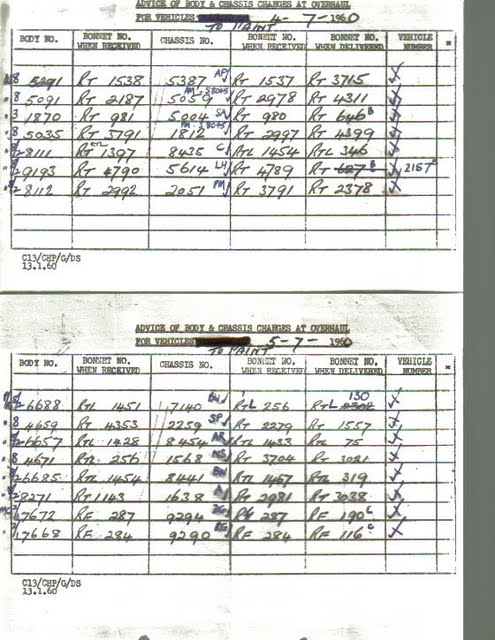 ADVICE OF BODY & CHASSIS CHANGES AT OVERHAUL
FOR VEHICLES 4-7-1960
TO PAINT
BODY NO. BONNET NO. WHEN RECEIVED CHASSIS NO. BONNET NO. WHEN RECEIVED BONNET NO. WHEN DELIVERED VEHICLE NUMBER
8 5291 RT 1538 5387 AF RT 1537 RT 3765
8 5091 RT 2187 5059 RT 2978 RT 4311
3 1870 RT 981 5004 SA RT 980 RT 646 B
8 5035 RT 3791 1812 RT 2997 RT 4399
8111 RTL 1397 8435 C RTL 1454 RTL 346
9193 RT 4790 5614 LH RT 4789 RT 627 B 2157
8112 RT 2992 2051 PM RT 3791 RT 2378
C13/CHP/G/DS
13.1.60
ADVICE OF BODY & CHASSIS CHANGES AT OVERHAUL
FOR VEHICLES 5-7-1960
TO PAINT
BODY NO. BONNET NO. WHEN RECEIVED CHASSIS NO. BONNET NO. WHEN RECEIVED BONNET NO. WHEN DELIVERED VEHICLE NUMBER
130
6688 RTL 1451 7140 BW RTL 256 RTL
8 4659 RT 4353 2259 SP RT 2279 RT 1557
6657 RTL 1428 8454 AR RTL 1433 RTL 75
8 4671 RTL 256 1568 NS RT 3704 RT 3021
6685 RTL 1454 8441 BW RTL 1467 RTL 319
8271 RT 1143 1638 RT 2981 RT 3038
7672 RF 287 9294 RF 287 RF 190 C
7668 RF 284 9290 RF 284 RF 116 C
C13/CHP/G/DS
13.1.60